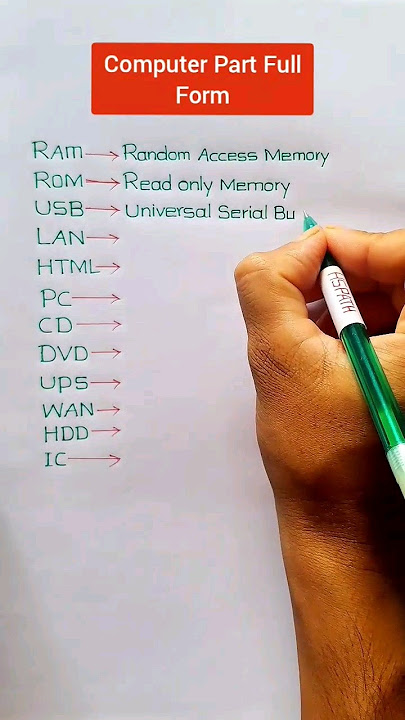 Computer Part Full
Form
RAM → Random Access Memory
ROM → Read only Memory
USB → Universal Serial Bu
LAN →
HTML →
PC →
CD →
DVD →
UPS →
WAN →
HDD →
IC →
ASPATH